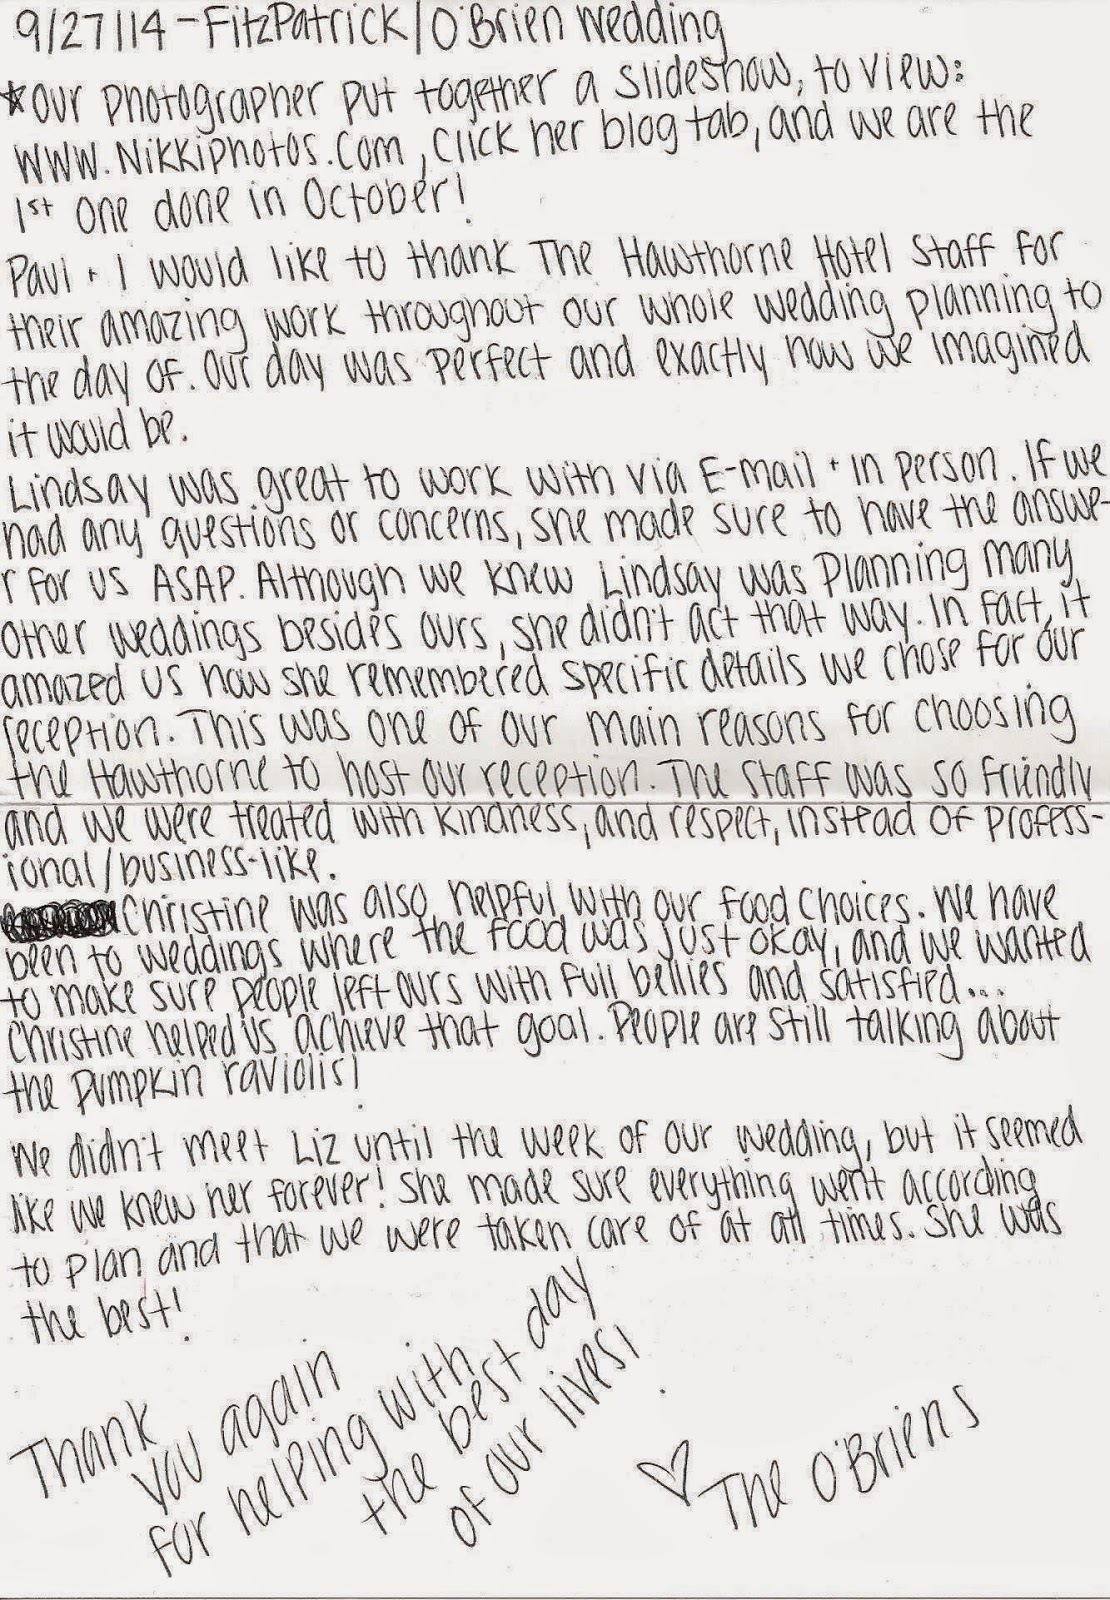 9/27/14 - FitzPatrick/O'Brien Wedding
*Our photographer put together a slideshow, to view:
www.Nikkiphotos.com, click her blog tab, and we are the
1st one done in October!
Paul + I would like to thank The Hawthorne Hotel Staff for
their amazing work throughout our whole wedding planning to
the day of. Our day was perfect and exactly how we imagined
it would be.
Lindsay was great to work with via E-mail + in person. If we
had any questions or concerns, she made sure to have the answe-
r for us ASAP. Although we knew Lindsay was planning many
other weddings besides ours, she didn't act that way. In fact, it
amazed us how she remembered specific details we chose for our
reception. This was one of our main reasons for choosing
the Hawthorne to host our reception. The staff was so friendly
and we were treated with kindness, and respect, instead of profess-
ional/business-like.
Christine was also helpful with our food choices. We have
been to weddings where the food was just okay, and we wanted
to make sure people left ours with full bellies and satisfied...
Christine helped us achieve that goal. People are still talking about
the pumpkin raviolis!
We didn't meet Liz until the week of our wedding, but it seemed
like we knew her forever! She made sure everything went according
to plan and that we were taken care of at all times. She was
the best!
Thank
you again
for helping with
the best day
of our lives!
♡ The O'Briens